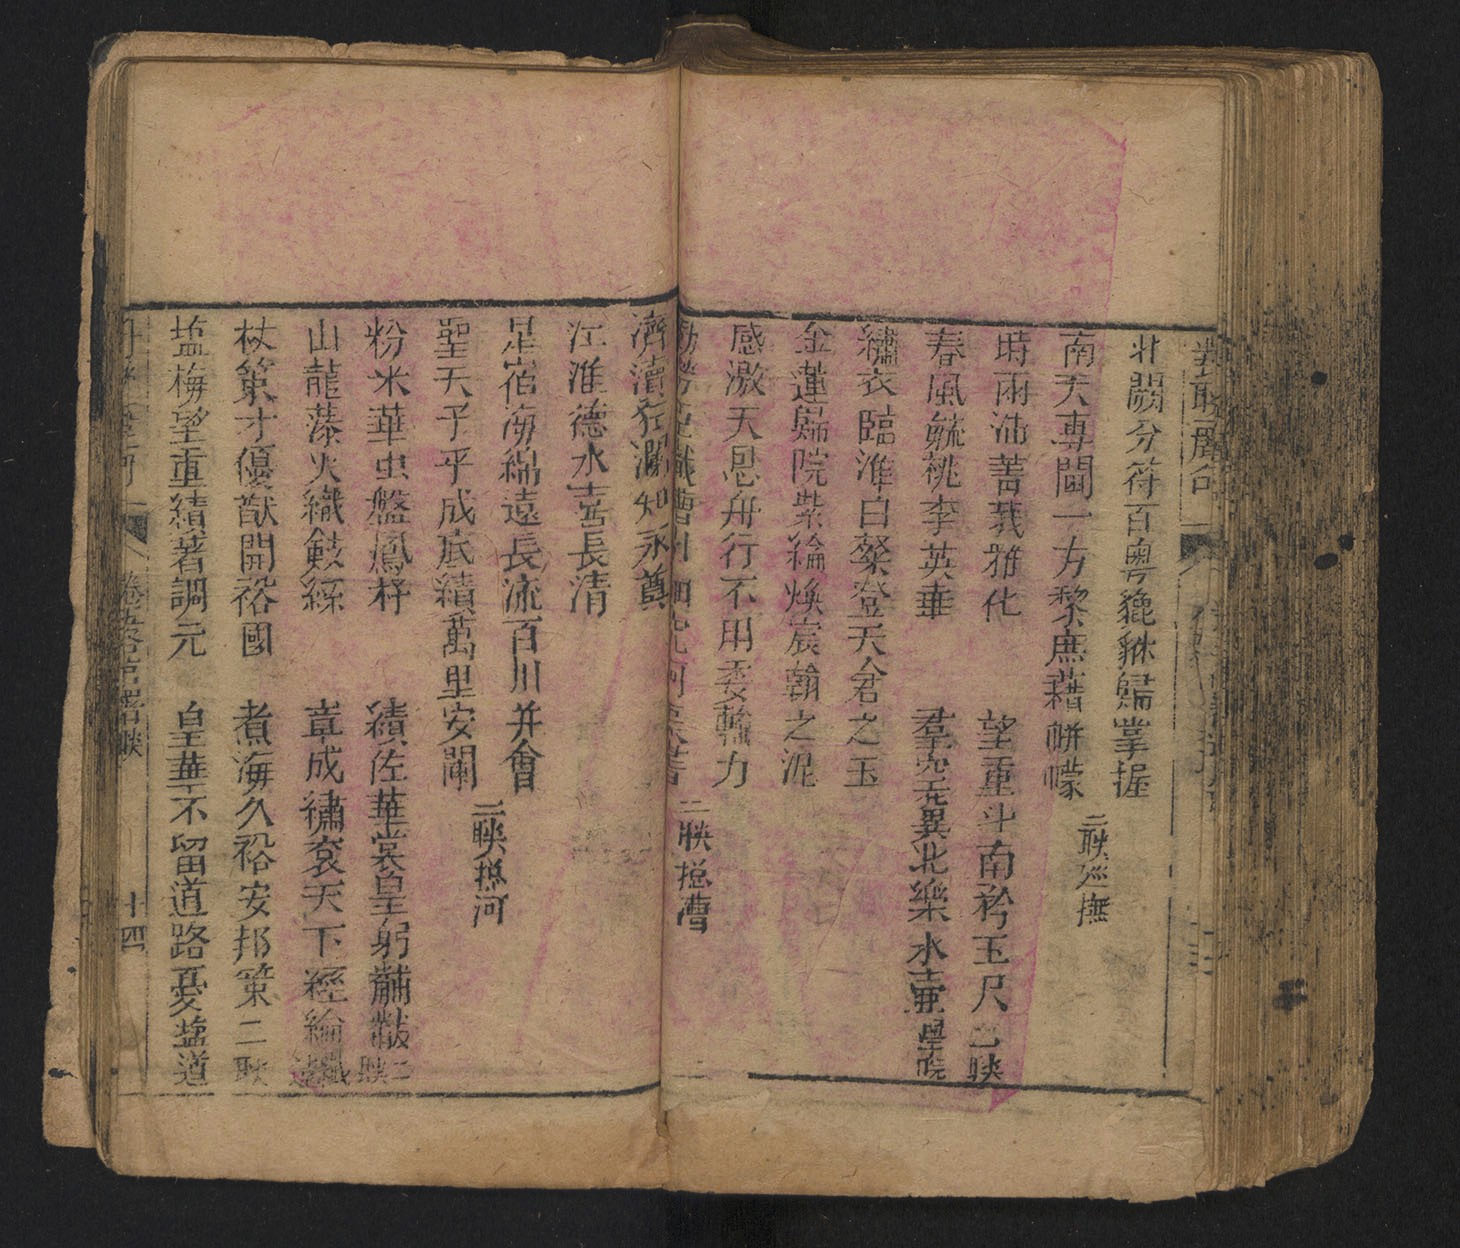 北闕分符百粵貔貅歸掌握
南天專閫一方黎庶藉帡幪 二聯廵撫
時雨沛菁莪雅化 望重斗南矜玉尺 二聯
春風毓桃李英華 羣空冀北樂水壷 學院
繡衣臨淮白粲登天倉之玉
金蓮歸院紫綸煥宸翰之泥
感激天恩舟行不用委輸力
二聯捴漕
濟瀆狂瀾知永奠
江淮德水喜長清
星宿海綿遠長流百川并會
聖天子平成底績萬里安闌 二聯捴河
粉米華虫盤鳳杼 績佐華裳皇躬黼黻 二聯
山龍藻火織鮫綃 章成繡袞天下經綸 織造
杖策才優猷開裕國 煮海久裕安邦策 二聯
塩梅望重績著調元 皇華不留道路憂 塩道
十四